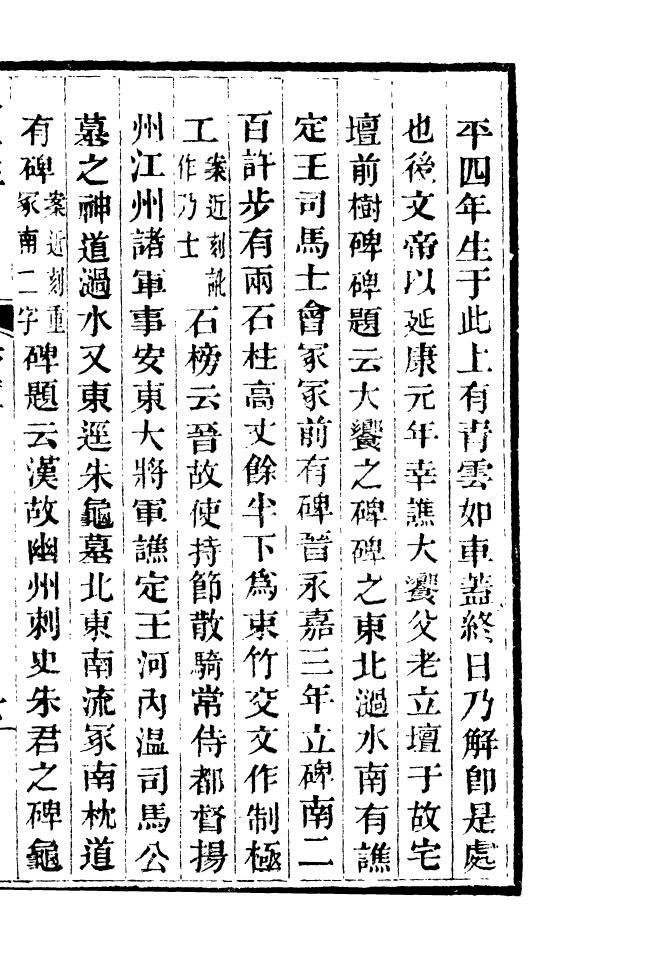 平四年生于此上有青雲如車蓋終日乃解卽是處
也後文帝以延康元年幸譙大饗父老立壇于故宅
壇前樹碑碑題云大饗之碑碑之東北濄水南有譙
定王司馬士會冢冢前有碑晉永嘉三年立碑南二
百許步有兩石柱高丈餘半下爲束竹交文作制極
工案近刻訛作乃士石榜云晉故使持節散騎常侍都督揚
州江州諸軍事安東大將軍譙定王河內温司馬公
墓之神道濄水又東逕朱龜墓北東南流冢南枕道
有碑案近刻重冢南二字碑題云漢故幽州刺史朱君之碑龜